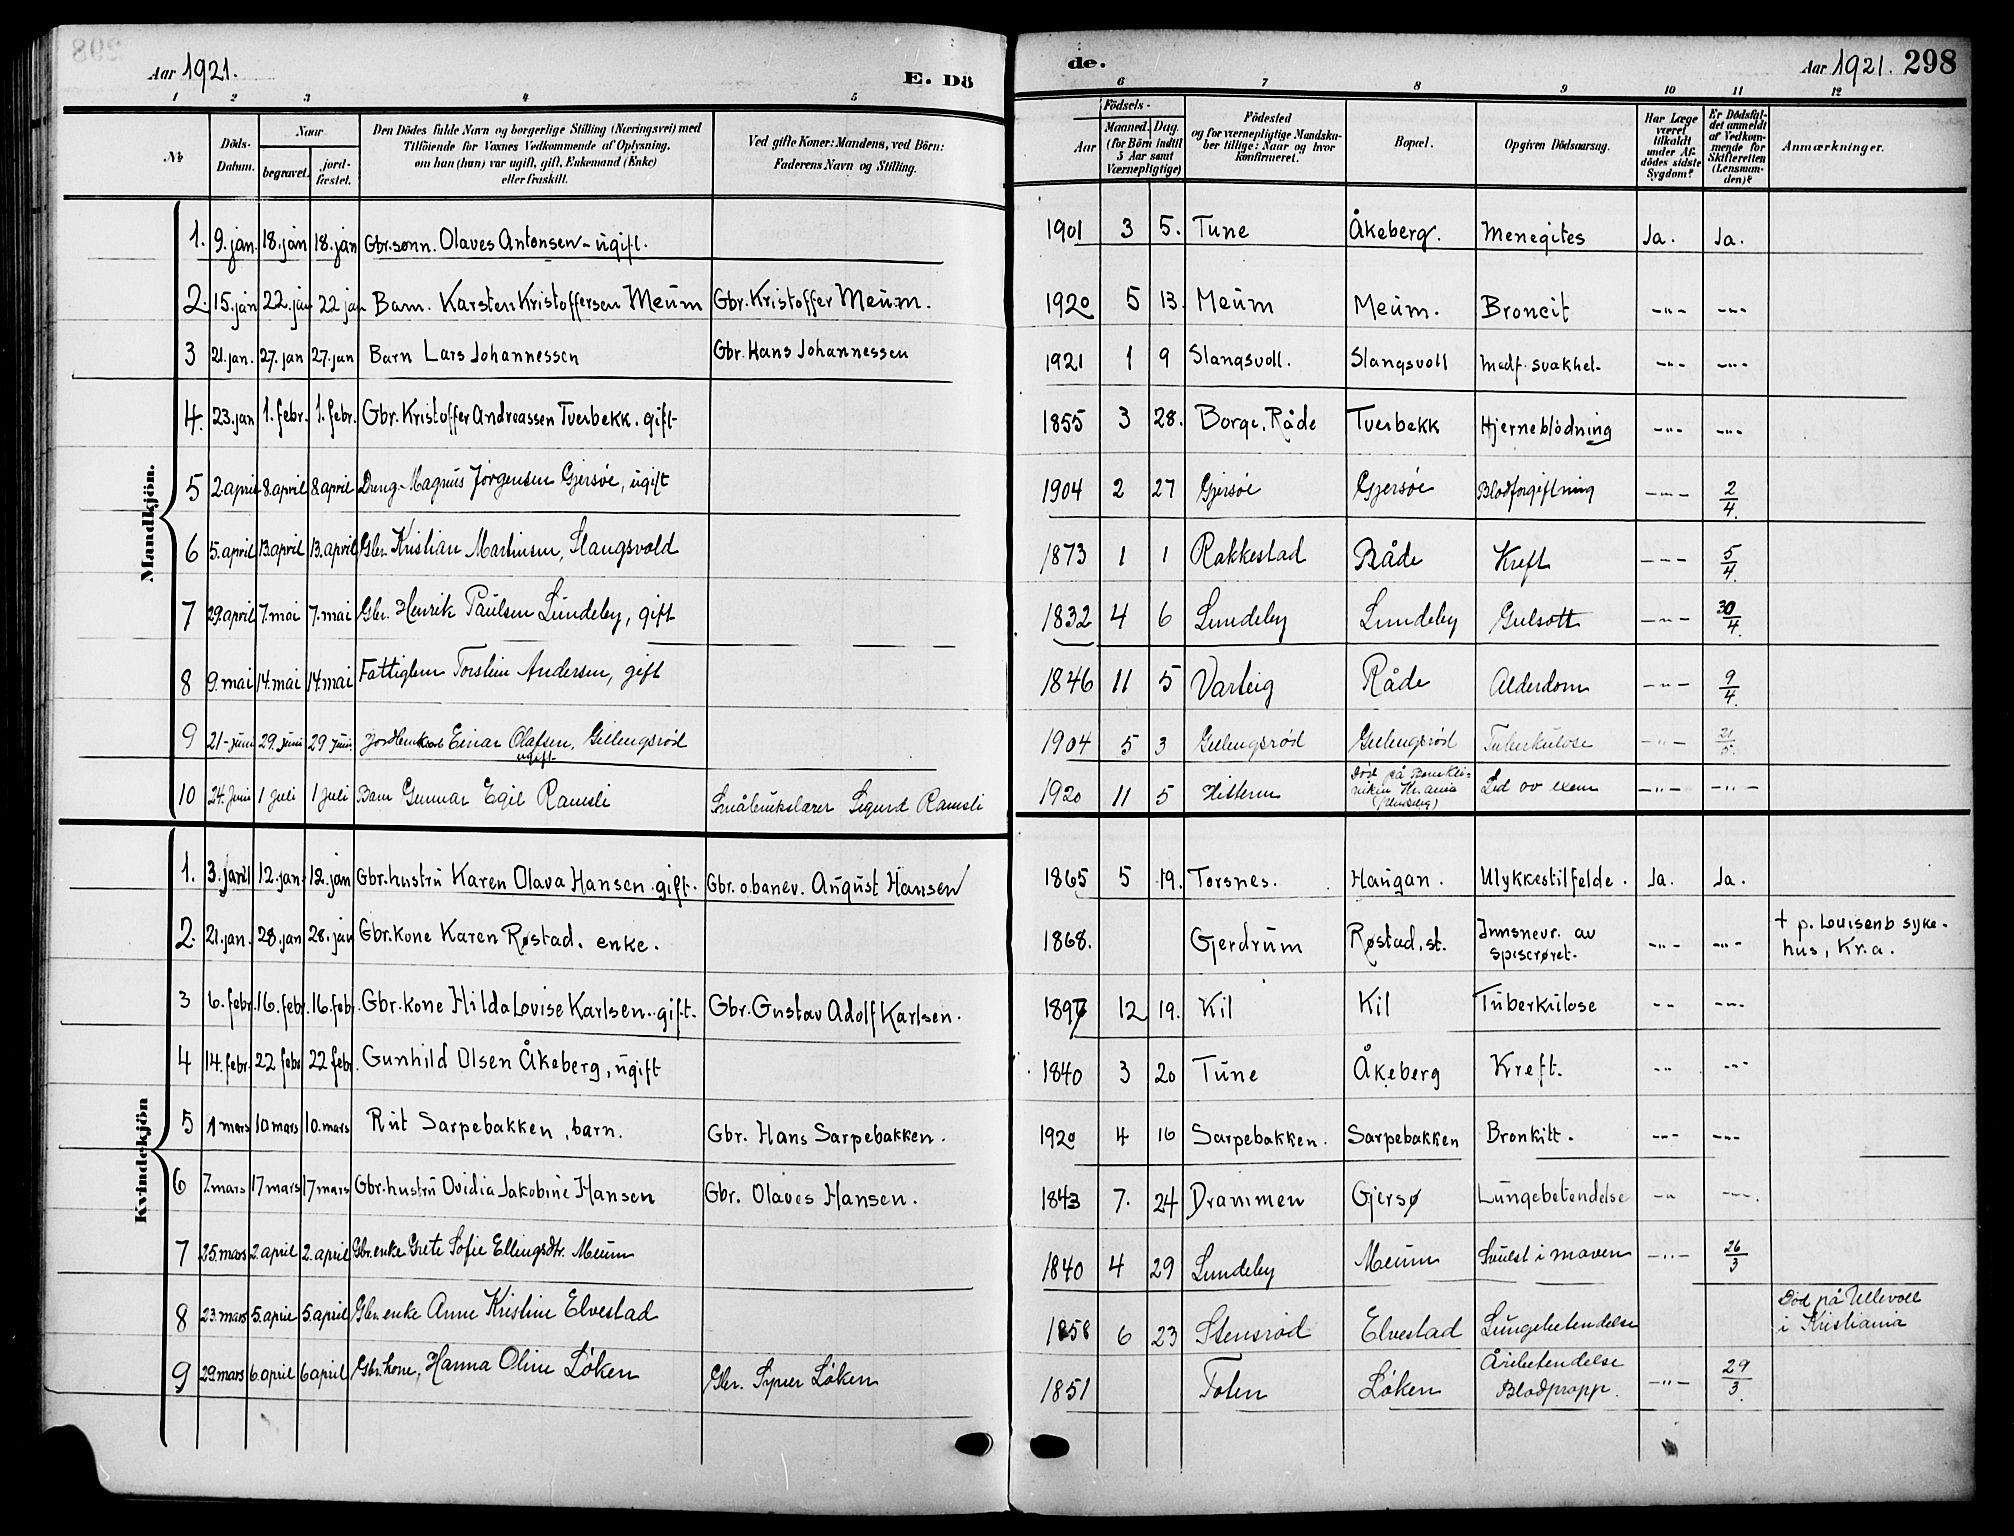 Aar 1921.
E. Dö
de.
Aar 1921. 298
1 2 3 4 5 6 7 8 9 10 11 12
№
Döds-Datum.
Naar
begravet.
jord-fæstet.
Den Dödes fulde Navn og borgerlige Stilling (Næringsvei) med Tilföiende for Voxnes Vedkommende af Oplysning, om han (hun) var ugift, gift, Enkemand (Enke) eller fraskilt.
Ved gifte Koner: Mandens, ved Börn: Faderens Navn og Stilling.
Födsels-
Aar
Maaned. Dag.
(for Börn indtil 5 Aar samt Værnepligtige)
Födested og for værnepligtige Mandskaber tillige: Naar og hvor konfirmeret.
Bopæl.
Opgiven Dödsaarsag.
Har Læge været tilkaldt under Afdödes sidste Sygdom?
Er Dödsfaldet anmeldt af Vedkommende for Skifteretten (Lensmanden)?
Anmærkninger.
Mandkjön.
1. 9. jan. 18. jan 18. jan Gbr.sønn. Olaves Antonsen - ugift. 1901 3 5. Tune Åkeberg. Menegites Ja. Ja.
2. 15. jan 22. jan 22 jan Barn. Karsten Kristoffersen Meum Gbr. Kristoffer Meum. 1920 5 13. Meum Meum. Broncit -"- -"-
3 21. jan. 27. jan 27. jan Barn Lars Johannessen Gbr. Hans Johannessen 1921 1 9 Slangsvoll. Slangsvoll Medf. svakhet. -"- -"-
4. 23. jan 1. febr. 1. febr. Gbr. Kristoffer Andreassen Tverbekk. gift- 1855 3 28. Borge, Råde Tverbekk Hjerneblödning -"- -"-
5 2. april 8. april 8. april Dreng. Magnus Jörgensen Gjersöe, ugift 1904 2 27 Gjersöe Gjersöe Blodforgiftning -"- 2/4.
6 5. april 13. april 13. april Gbr. Kristian Martinsen, Slangsvold 1873 1 1 Rakkestad Råde Kreft -"- 5/4.
7 29. april 7. mai 7. mai Gbr. Henrik Paulsen Lundeby, gift 1832 4 6 Lundeby Lundeby Gulsott -"- 30/4.
8 9. mai 14. mai 14. mai Fattiglem Torstein Andersen, gift 1846 11 5 Varteig Råde Alderdom -"- 9/4.
9 21 - juni 29. juni 29 juni Einar Olafsen, Gillingsröd ugift- 1904 5 3 Gillingsröd Gillingsröd Tuberkulose -"- 21/5.
10 24. juni 1 juli 1 juli Barn Gunnar Egil Ramsli Småbrukslærer Sigurd Ramsli 1920 11 5 Hitteren Död på Kr.ania Led av exem -"- -"-
Kvindekjön
1. 3. jan 21 12. jan. 12. jan Gbr. hustru Karen Olava Hansen. gift. Gbr. o. banev. August Hansen 1865 5 19. Torsnes. Haugan. Ulykkestilfelde. Ja. Ja.
2. 21. jan. 28. jan 28. jan Gbr. kone Karen Røstad. enke. 1868. Gjerdrum Røstad, st. Innsnevr. av spiserøret. -"- -"- † p. Louisenb syke-hus, Kr.a.
3 6. febr. 16. febr. 16. febr. Gbr. kone Hilda Lovise Karlsen. gift. Gbr. Gustav Adolf Karlsen. 1897 12 19. Kil Kil Tuberkulose -"- -"-
4 14. febr. 22 febr 22 febr. Gunhild Olsen Åkeberg, ugift 1840 3 20 Tune Åkeberg Kreft. -"- -"-
5 1 mars 10 mars 10. mars Rut Sarpebakken, barn. Gbr. Hans Sarpebakken. 1920 4 16 Sarpebakken. Sarpebakken Bronkitt. -"- -"-
6 7. mars 17 mars 17 mars Gbr. hustru Ovidia Jakobine Hansen Gbr. Olaves Hansen. 1843 7. 24 Drammen Gjersø Lungebetendelse -"- -"-
7 25. mars 2. april 2. april Gbr. enke Grete Sofie Ellingsdtr. Meum 1840 4 29 Lundeby Meum Svulst i maven -"- 26/3
8 23. mars 5. april 5. april Gbr. enke Anne Kristine Elvestad 1858 6 23 Stensröd Elvestad Lungebetendelse Död på Ullevoll i Kristiania
9 29. mars 6. april 6 april Gbr. kone, Hanna Oline Löken Gbr. Syver Löken 1851 Toten Löken Årebetendelse Blodpropp. -"- 29/3.